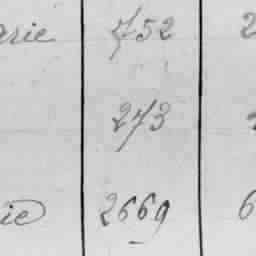 arie 752 2
273
ie 2669 6